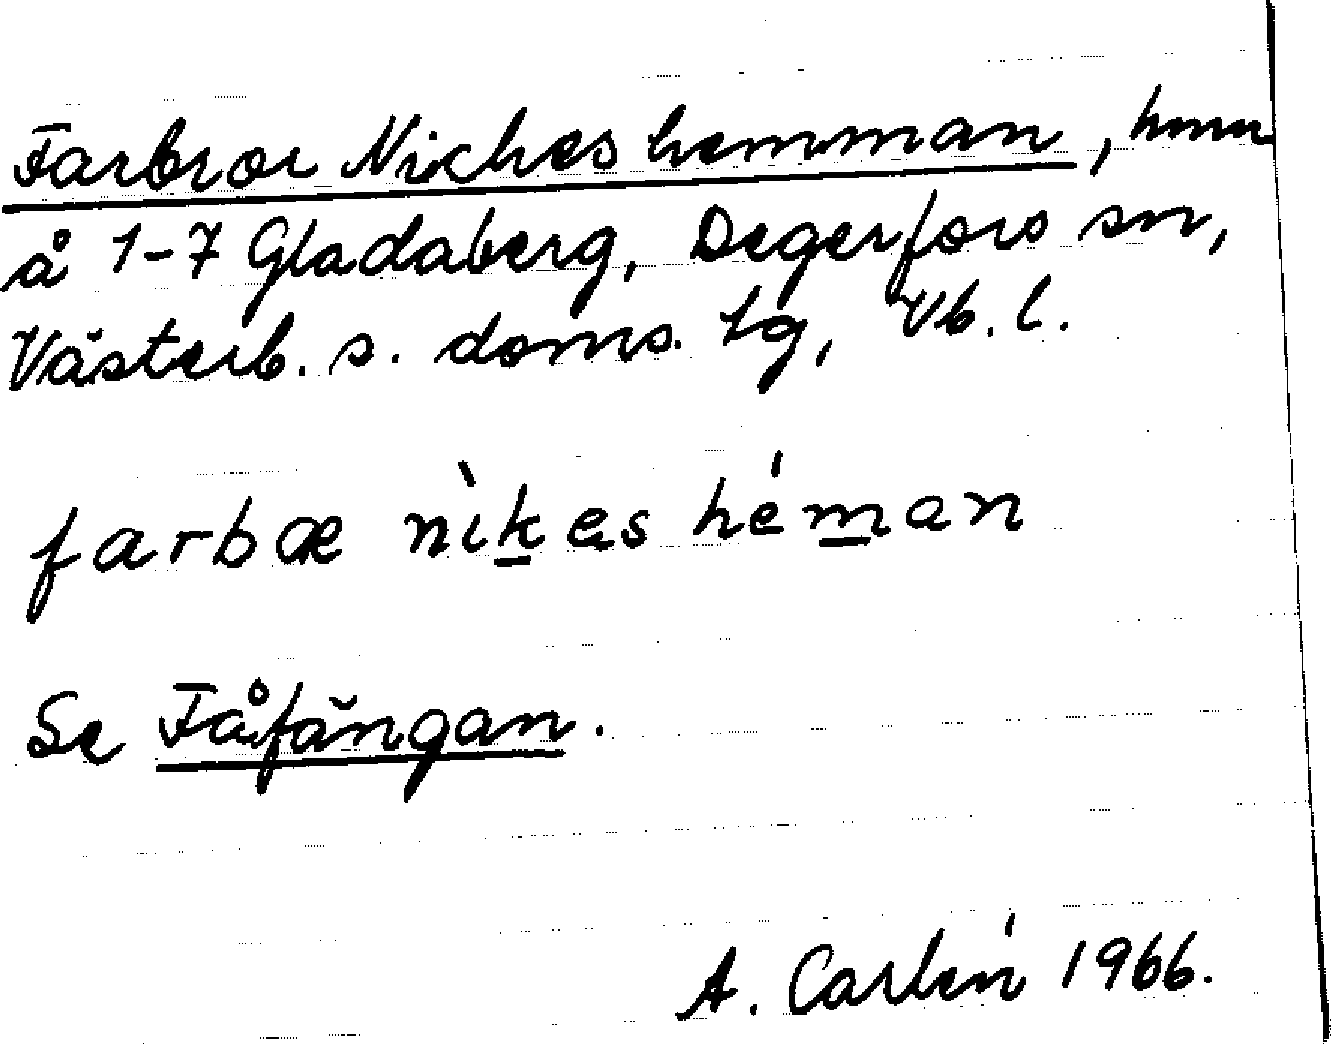 Farbror Nickes hemman, hmn
å 1-7 Gladaberg, Degerfors sn,
Västerb. s. doms. tg, Vb. l.
farbœ nìkes héman
Se Fåfängan.
A. Carlén 1966.